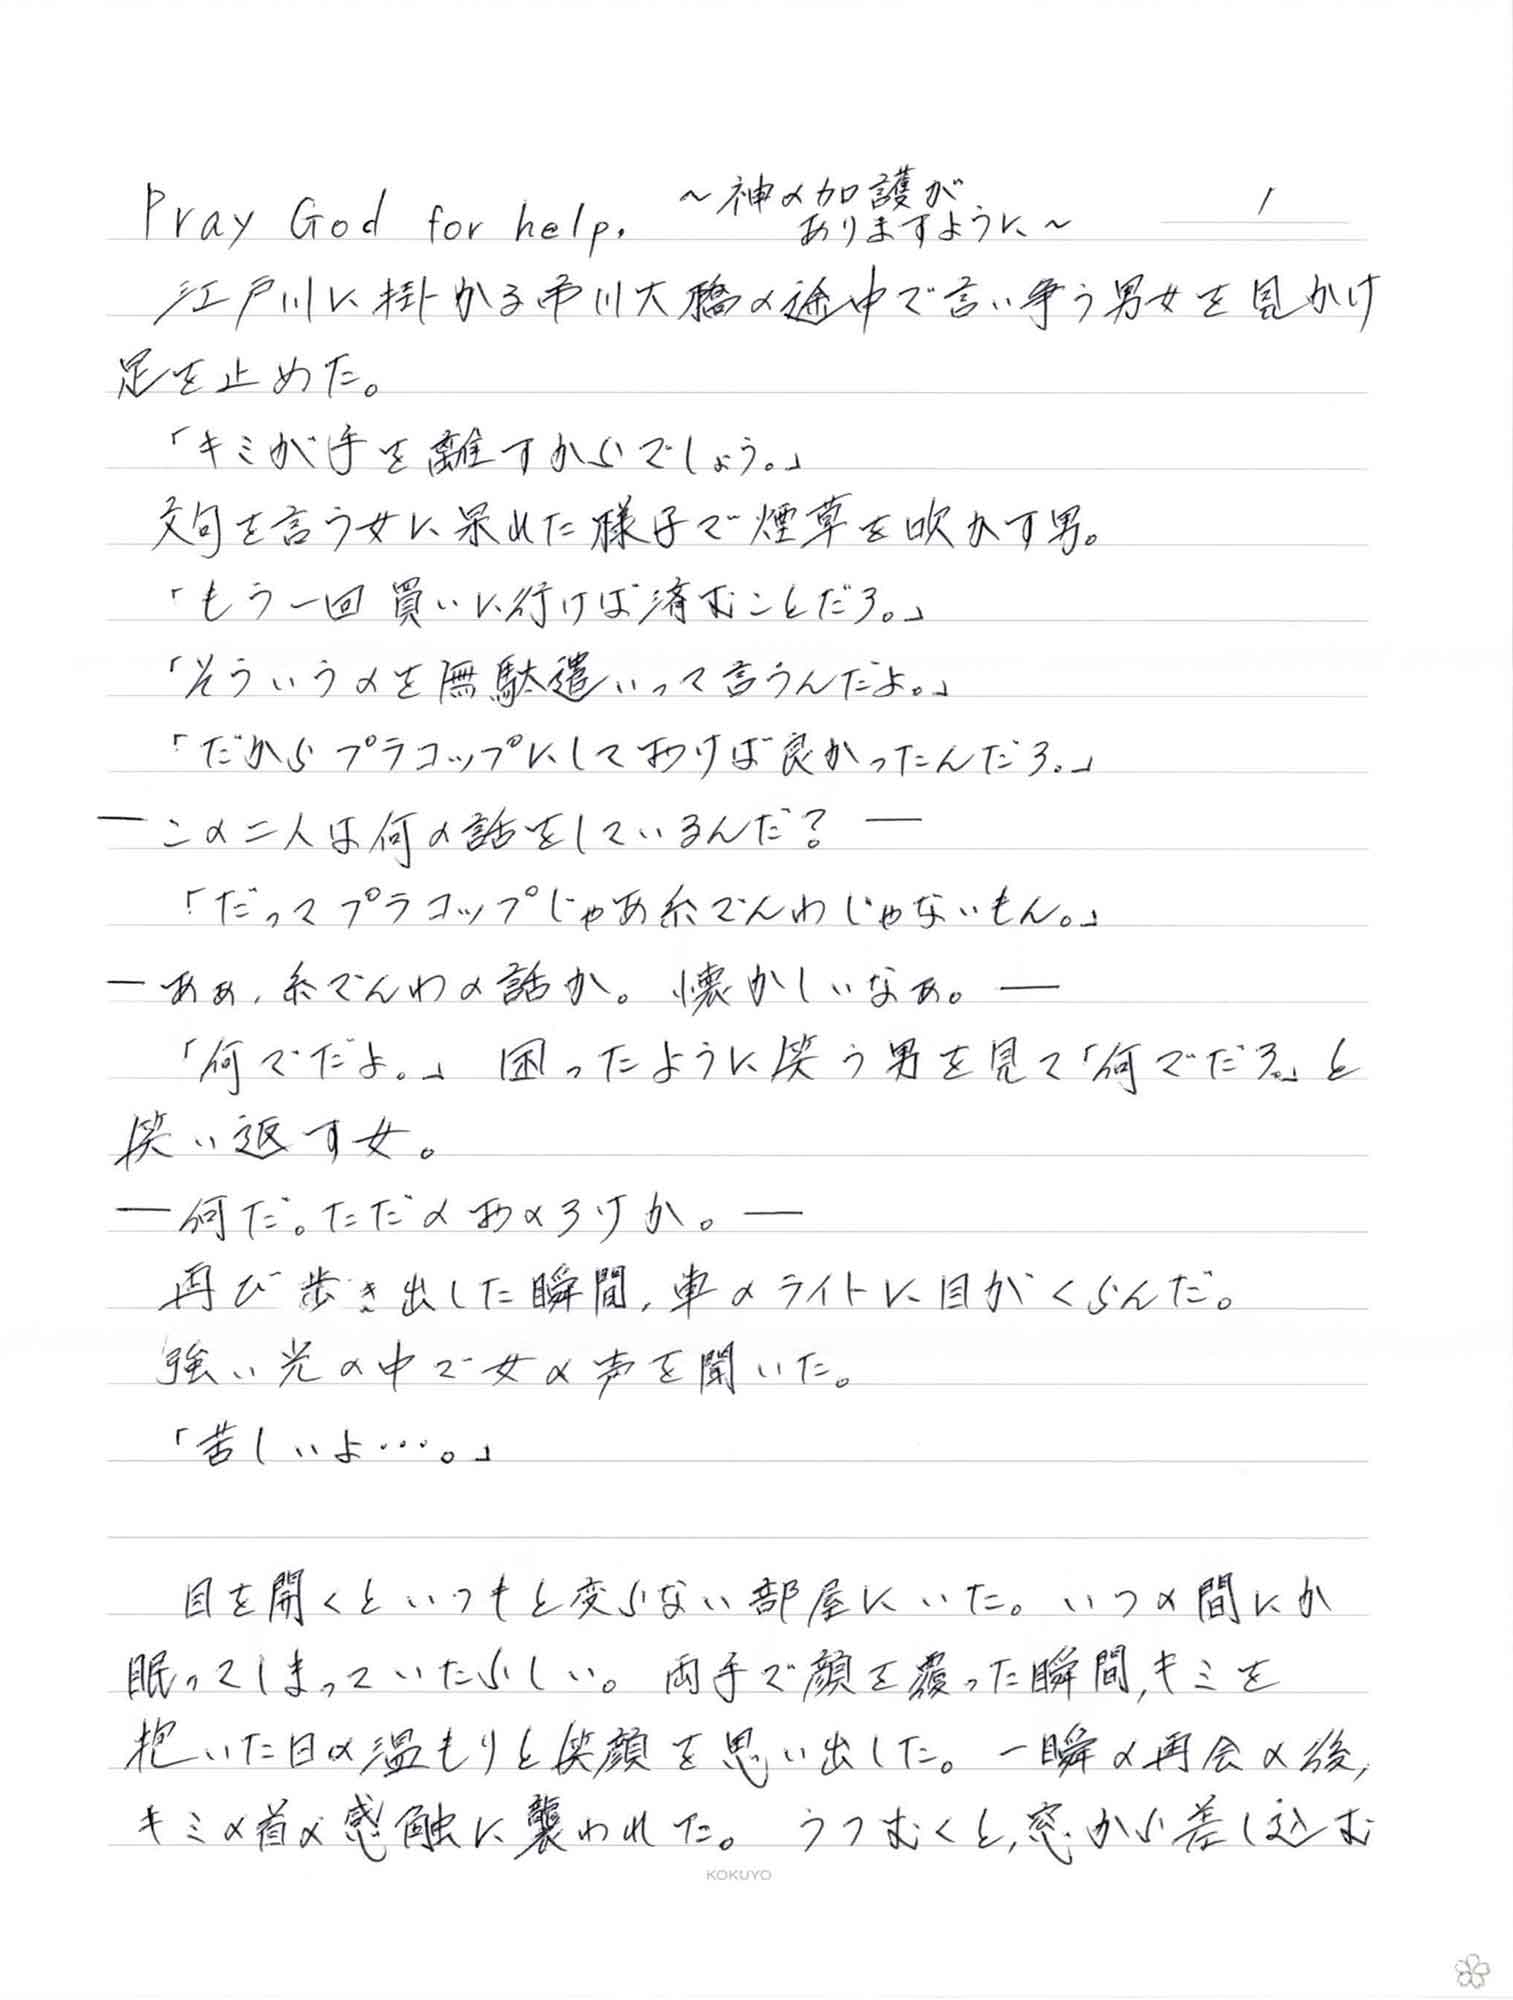 Pray God for help. ～神の加護が
ありますように～ 1
江戸川に掛かる市川大橋の途中で言い争う男女を見かけ
足を止めた。
「キミが手を離すからでしょう。」
文句を言う女に呆れた様子で煙草を吹かす男。
「もう一回買いに行けば済むことだろ。」
「そういうのを無駄遣いって言うんだよ。」
「だからプラコップにしておけば良かったんだろ。」
―この二人は何の話をしているんだ？―
「だってプラコップじゃあ糸でんわじゃないもん。」
―あぁ,糸でんわの話か。懐かしいなぁ。―
「何でだよ。」困ったように笑う男を見て「何でだろ。」と
笑い返す女。
―何だ。ただのおのろけか。―
再び歩き出した瞬間,車のライトに目がくらんだ。
強い光の中で女の声を聞いた。
「苦しいよ…。」
目を開くといつもと変らない部屋にいた。いつの間にか
眠ってしまっていたらしい。両手で顔を覆った瞬間,キミを
抱いた日の温もりと笑顔を思い出した。一瞬の再会の後,
キミの首の感触に襲われた。うつむくと,窓から差し込む
KOKUYO